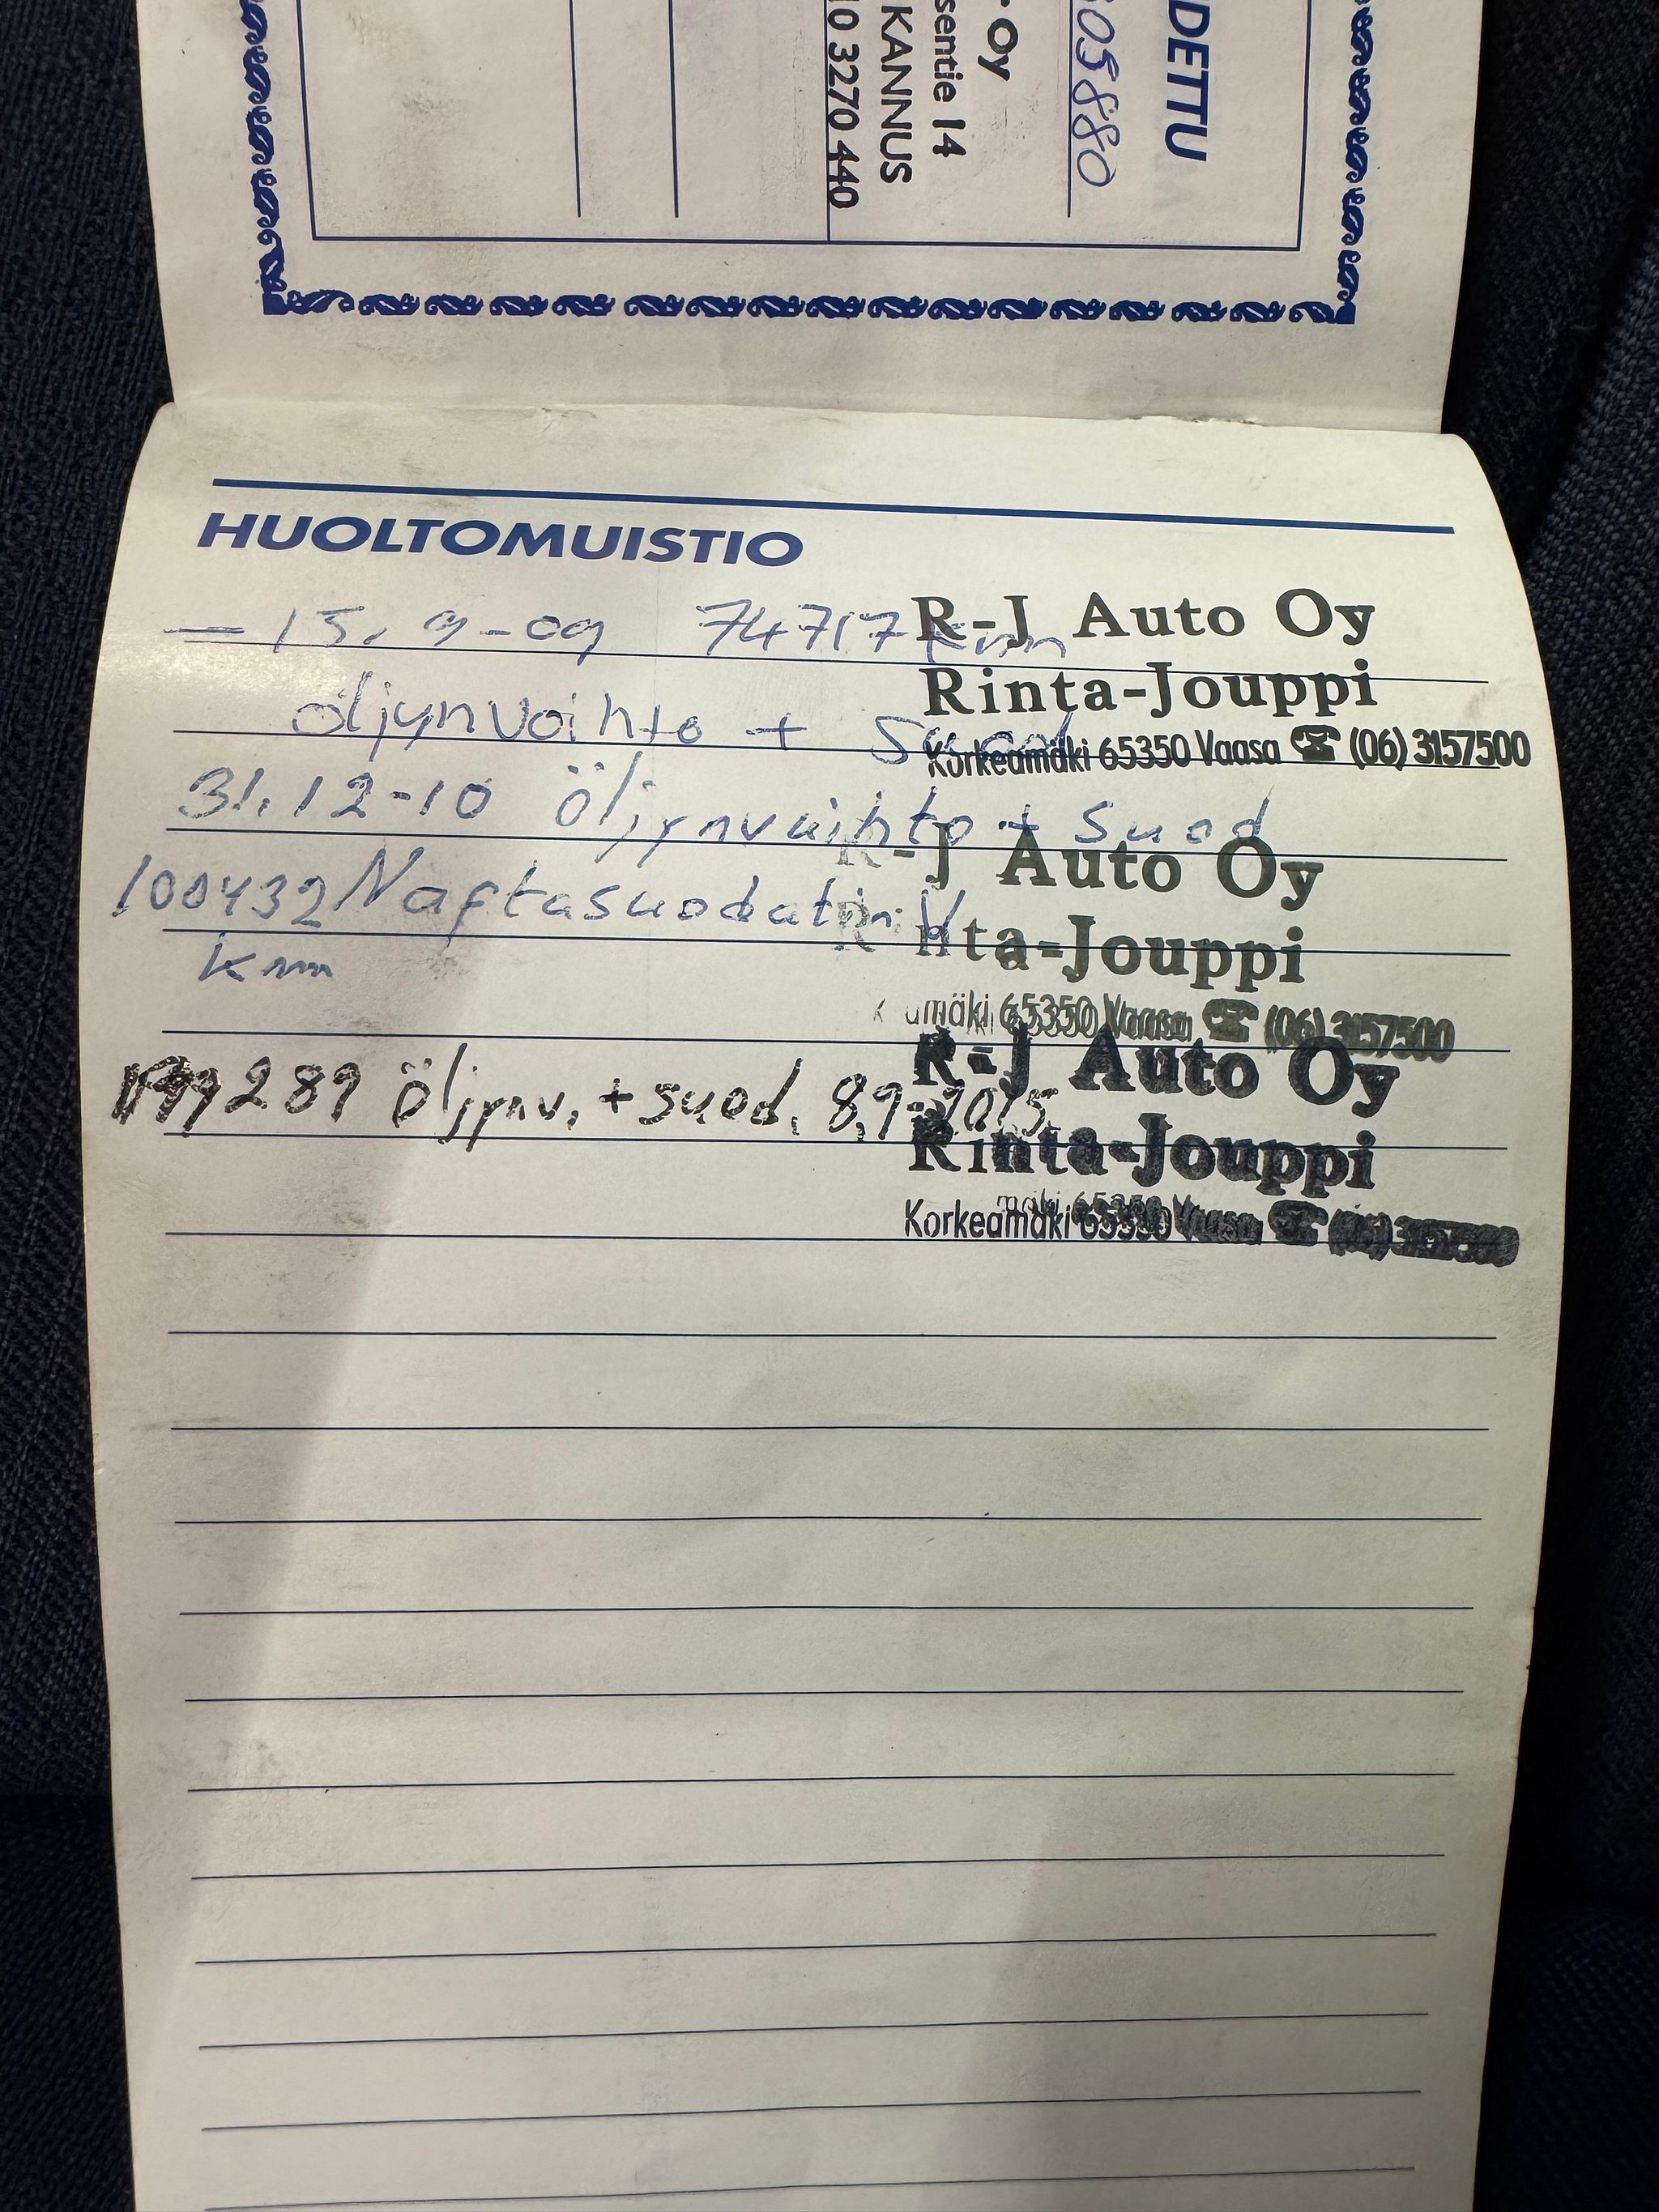 DETTU
305880
Oy
sentie 14
KANNUS
10 3270 440
HUOLTOMUISTIO
15. 9-09 74717 km
R-J Auto Oy
Rinta-Jouppi
Korkeamäki 65350 Vaasa ☎ (06) 3157500
öljynvaihto + Suod
31.12-10 Öljynvaihto + Suod
R-J Auto Oy
100432 Naftasuodatin V
Rinta-Jouppi
km
amäki 65350 Vaasa ☎ (06) 3157500
R-J Auto Oy
289 öljynv. + suod. 8.9-2015
Rinta-Jouppi
Korkeamäki 65350 Vaasa ☎ (06) 3157500